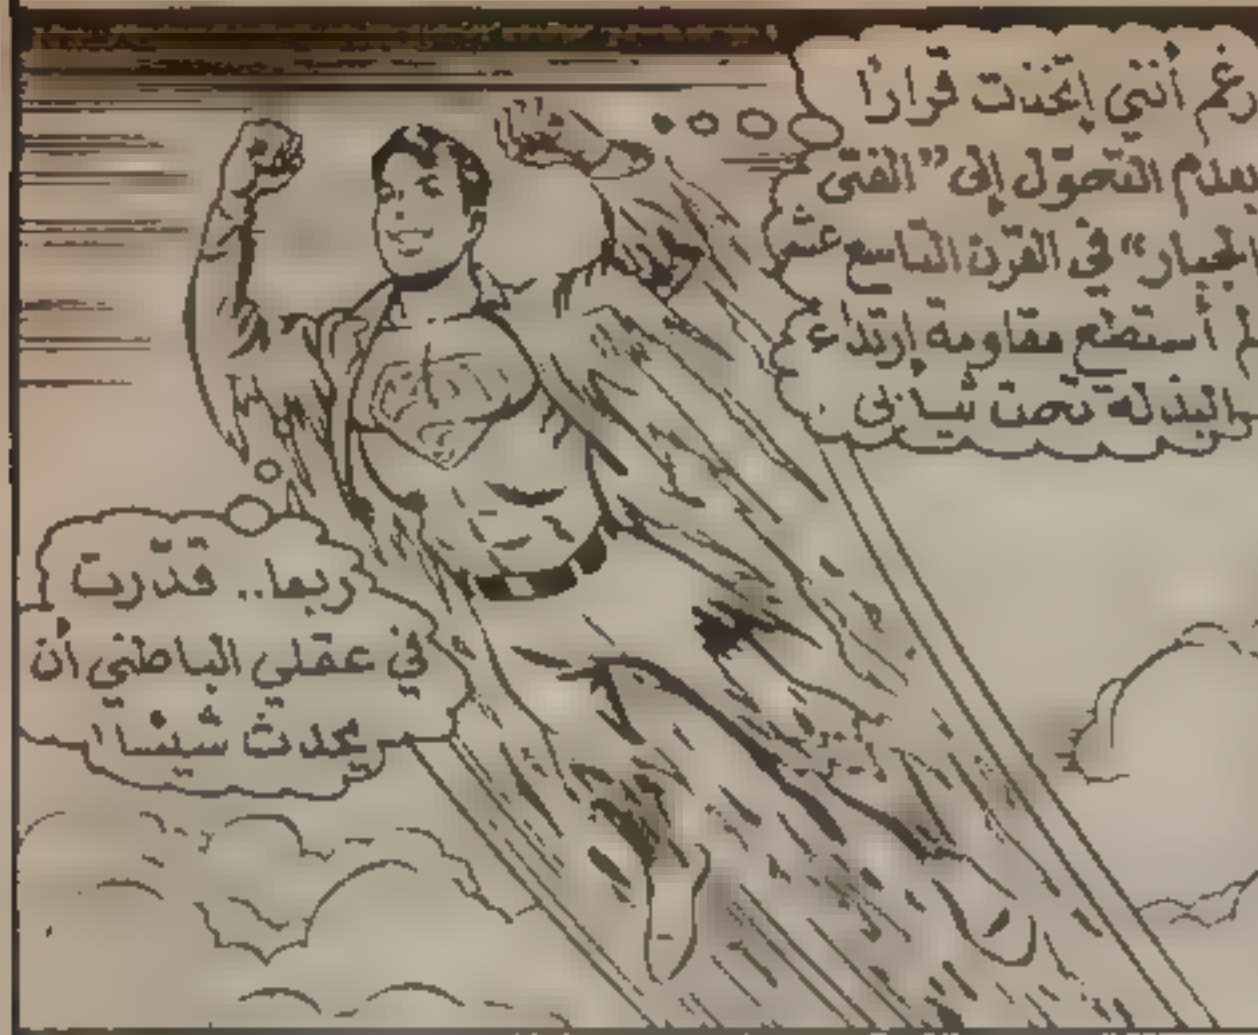 رغم أنني إتخذت قرارًا
بعدم التحوّل إلى "الفتى
الجبار" في القرن التاسع عشر
لم أستطع مقاومة إرتداء
البذلة تحت ثيابي
ربما.. قدّرت
في عقلي الباطني أن
يحدث شيئًا!